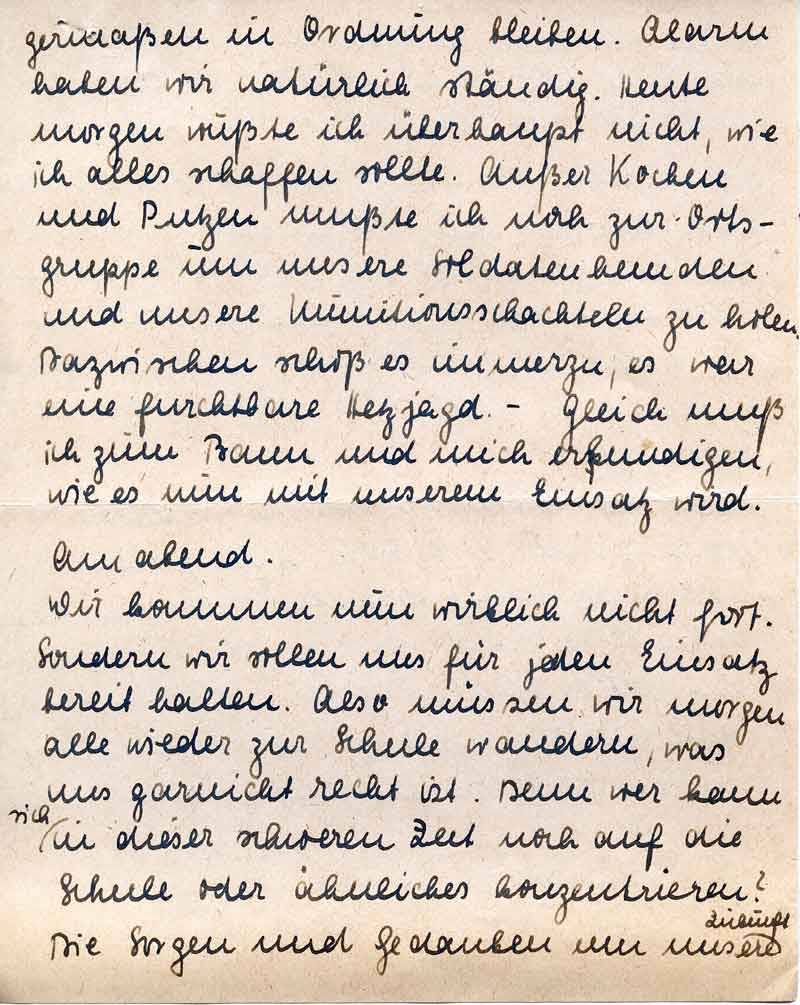 germaßen in Ordnung bleiben. Alarm
haben wir natürlich ständig. Heute
morgen wußte ich überhaupt nicht, wie
ich alles schaffen sollte. Außer Kochen
und Putzen mußte ich noch zur Orts-
gruppe um unsere Soldatenhemden
und unsere Munitionsschachteln zu holen.
Dazwischen schoß es immerzu, es war
eine furchtbare Hetzjagd. - Gleich muß
ich zum Bann und mich erkundigen,
wie es nun mit unserem Einsatz wird.
Am abend.
Wir kommen nun wirklich nicht fort.
Sondern wir sollen uns für jeden Einsatz
bereit halten. Also müssen wir morgen
alle wieder zur Schule wandern, was
uns garnicht recht ist. Denn wer kann
sich
in dieser schweren Zeit noch auf die
Schule oder ähnliches konzentrieren?
Zukunft
Die Sorgen und Gedanken um unsere